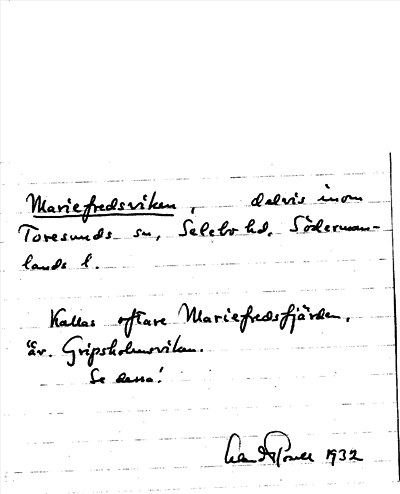 Mariefredsviken, delvis inom
Toresunds sn, Selebo hd. Söderman-
lands l.
Kallas oftare Mariefredsfjärden,
äv. Gripsholmsviken.
Se dessa!
1932